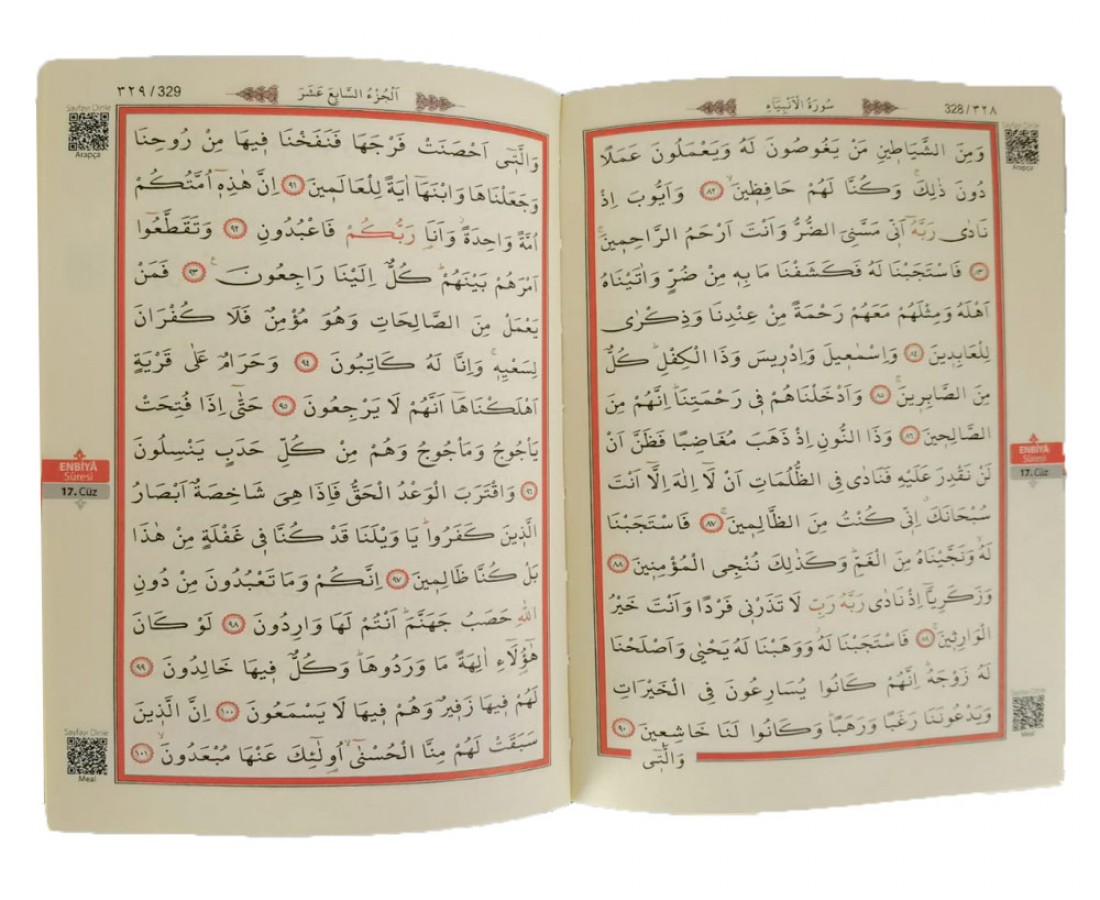 328/٣٢٨
سُورَةُ الْاَنْبِيَاءِ
Arapça
وَمِنَ الشَّيَاطٖينِ مَنْ يَغُوصُونَ لَهُ وَيَعْمَلُونَ عَمَلًا
دُونَ ذٰلِكَۚ وَكُنَّا لَهُمْ حَافِظٖينَۙ ﴿٨٢﴾ وَاَيُّوبَ اِذْ
نَادٰى رَبَّهُٓ اَنّٖى مَسَّنِىَ الضُّرُّ وَاَنْتَ اَرْحَمُ الرَّاحِمٖينَۚ
﴿٨٣﴾ فَاسْتَجَبْنَا لَهُ فَكَشَفْنَا مَا بِهٖ مِنْ ضُرٍّ وَاٰتَيْنَاهُ
اَهْلَهُ وَمِثْلَهُمْ مَعَهُمْ رَحْمَةً مِنْ عِنْدِنَا وَذِكْرٰى
لِلْعَابِدٖينَ ﴿٨٤﴾ وَاِسْمٰعٖيلَ وَاِدْرٖيسَ وَذَا الْكِفْلِؕ كُلٌّ
مِنَ الصَّابِرٖينَۚ ﴿٨٥﴾ وَاَدْخَلْنَاهُمْ فٖى رَحْمَتِنَاؕ اِنَّهُمْ مِنَ
الصَّالِحٖينَ ﴿٨٦﴾ وَذَا النُّونِ اِذْ ذَهَبَ مُغَاضِبًا فَظَنَّ اَنْ
لَنْ نَقْدِرَ عَلَيْهِ فَنَادٰى فِى الظُّلُمَاتِ اَنْ لَٓا اِلٰهَ اِلَّٓا اَنْتَ
سُبْحَانَكَۗ اِنّٖى كُنْتُ مِنَ الظَّالِمٖينَۚ ﴿٨٧﴾ فَاسْتَجَبْنَا
لَهُۙ وَنَجَّيْنَاهُ مِنَ الْغَمِّؕ وَكَذٰلِكَ نُنْجِى الْمُؤْمِنٖينَ ﴿٨٨﴾
وَزَكَرِيَّٓا اِذْ نَادٰى رَبَّهُ رَبِّ لَا تَذَرْنٖى فَرْدًا وَاَنْتَ خَيْرُ
الْوَارِثٖينَۚ ﴿٨٩﴾ فَاسْتَجَبْنَا لَهُؗ وَوَهَبْنَا لَهُ يَحْيٰى وَاَصْلَحْنَا
لَهُ زَوْجَهُؕ اِنَّهُمْ كَانُوا يُسَارِعُونَ فِى الْخَيْرَاتِ
وَيَدْعُونَنَا رَغَبًا وَرَهَبًاؕ وَكَانُوا لَنَا خَاشِعٖينَ ﴿٩٠﴾
وَالَّتٖٓى
ENBİYÂ
Sûresi
17. Cüz
Meal
٣٢٩/329
اَلْجُزْءُ السَّابِعَ عَشَرَ
Sayfayı Dinle
Arapça
وَالَّتٖٓى اَحْصَنَتْ فَرْجَهَا فَنَفَخْنَا فٖيهَا مِنْ رُوحِنَا
وَجَعَلْنَاهَا وَابْنَهَٓا اٰيَةً لِلْعَالَمٖينَ ﴿٩١﴾ اِنَّ هٰذِهٖٓ اُمَّتُكُمْ
اُمَّةً وَاحِدَةًؗ وَاَنَا۬ رَبُّكُمْ فَاعْبُدُونِ ﴿٩٢﴾ وَتَقَطَّعُٓوا
اَمْرَهُمْ بَيْنَهُمْؕ كُلٌّ اِلَيْنَا رَاجِعُونَ۟ ﴿٩٣﴾ فَمَنْ
يَعْمَلْ مِنَ الصَّالِحَاتِ وَهُوَ مُؤْمِنٌ فَلَا كُفْرَانَ
لِسَعْيِهٖۚ وَاِنَّا لَهُ كَاتِبُونَ ﴿٩٤﴾ وَحَرَامٌ عَلٰى قَرْيَةٍ
اَهْلَكْنَاهَٓا اَنَّهُمْ لَا يَرْجِعُونَ ﴿٩٥﴾ حَتّٰٓى اِذَا فُتِحَتْ
يَاْجُوجُ وَمَاْجُوجُ وَهُمْ مِنْ كُلِّ حَدَبٍ يَنْسِلُونَ
﴿٩٦﴾ وَاقْتَرَبَ الْوَعْدُ الْحَقُّ فَاِذَا هِىَ شَاخِصَةٌ اَبْصَارُ
الَّذٖينَ كَفَرُواؕ يَا وَيْلَنَا قَدْ كُنَّا فٖى غَفْلَةٍ مِنْ هٰذَا
بَلْ كُنَّا ظَالِمٖينَ ﴿٩٧﴾ اِنَّكُمْ وَمَا تَعْبُدُونَ مِنْ دُونِ
اللّٰهِ حَصَبُ جَهَنَّمَؕ اَنْتُمْ لَهَا وَارِدُونَ ﴿٩٨﴾ لَوْ كَانَ
هٰٓؤُ۬لَٓاءِ اٰلِهَةً مَا وَرَدُوهَاؕ وَكُلٌّ فٖيهَا خَالِدُونَ ﴿٩٩﴾
لَهُمْ فٖيهَا زَفٖيرٌ وَهُمْ فٖيهَا لَا يَسْمَعُونَ ﴿١٠٠﴾ اِنَّ الَّذٖينَ
سَبَقَتْ لَهُمْ مِنَّا الْحُسْنٰىۙ اُو۬لٰٓئِكَ عَنْهَا مُبْعَدُونَۙ ﴿١٠١﴾
ENBİYÂ
Sûresi
17. Cüz
Sayfayı Dinle
Meal